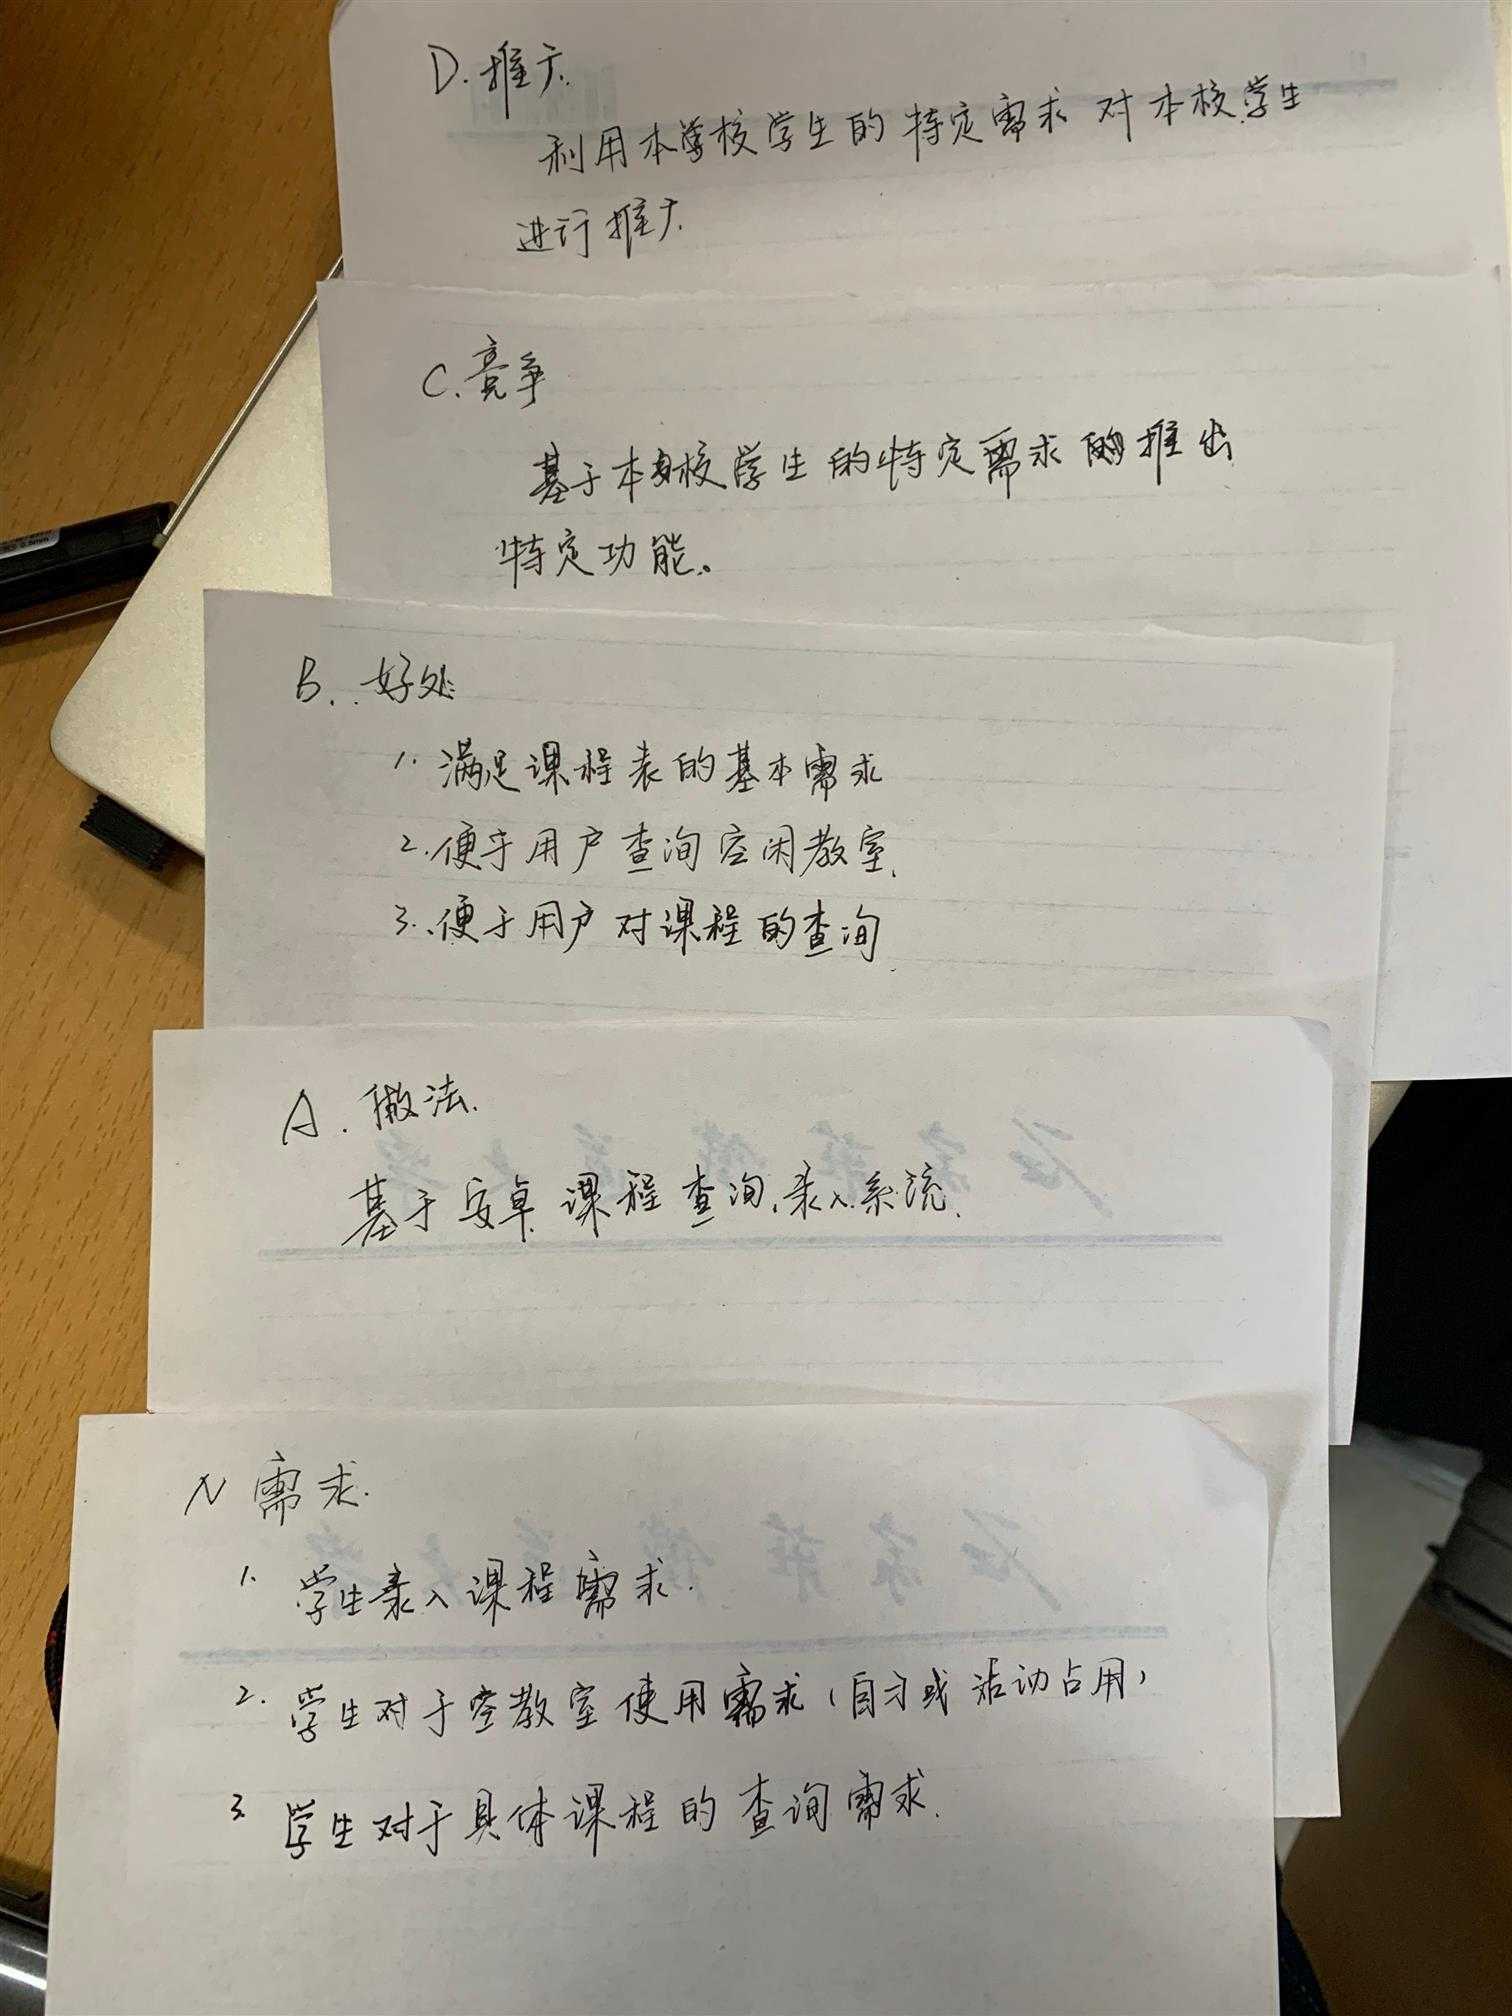 D. 推广.
利用本学校学生的特定需求对本校学生
进行推广.
C. 竞争
基于本校学生的特定需求的推出
特定功能。
B. 好处
1. 满足课程表的基本需求
2. 便于用户查询空闲教室.
3. 便于用户对课程的查询.
A. 做法.
基于安卓课程查询.录入系统.
N 需求.
1. 学生录入课程需求.
2. 学生对于空教室使用需求(自习或活动占用)
3. 学生对于具体课程的查询需求.